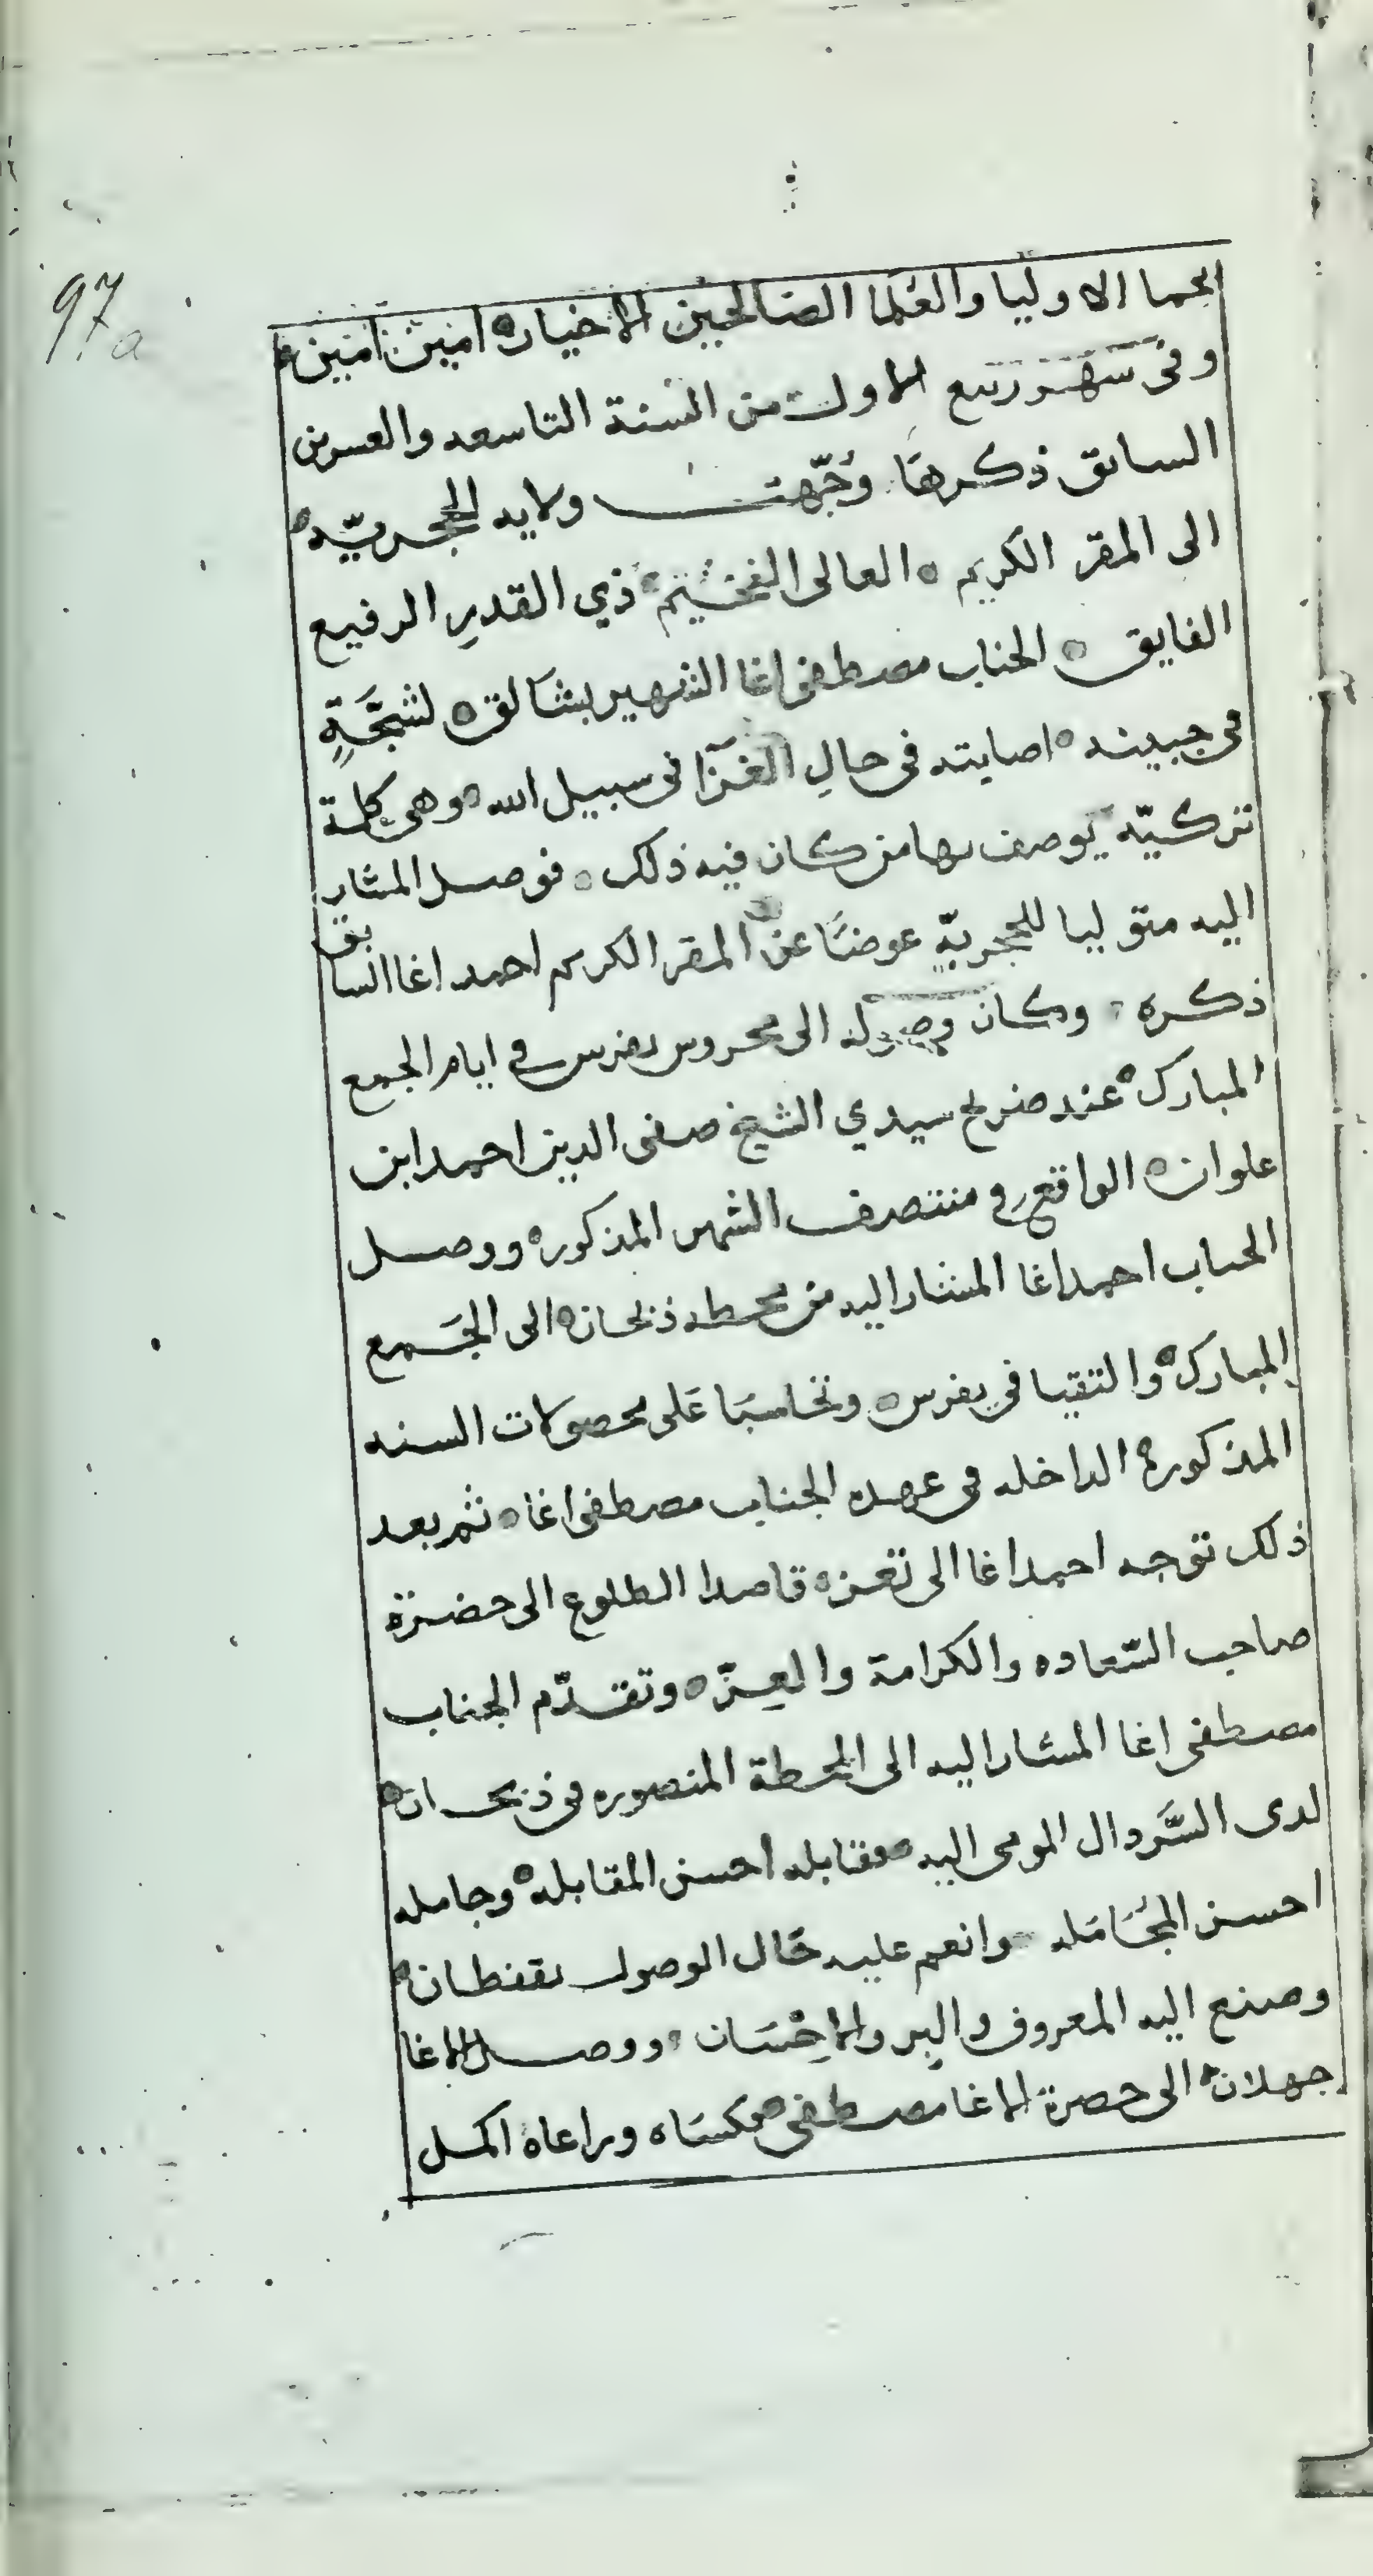 97a
الجما الاوليا والعُلما الصالحين الاخيار ه امين امين ه
وفى شهر ربيع الاول من السنة التاسعه والعسرين
السابق ذكرهَا وُجّهت ولايه الحجريّه ه
الى المقر الكريم ه العالى الفخيم ه ذي القدرِ الرفيع
الفايق ه الجناب مصطفى اغا الشهير بشالق ه لشجَّةٍ
فى جبينه ه اصابته فى حالِ الغزَا فى سبيل الله ه وهى كلمة
تركيّه يوصف بها من كان فيه ذلك ه فوصل المشار
اليه متوليا للحجريّةِ عوضًا عن المقر الكريم احمد اغا السابق
ذكره ه وكان وصوله الى محروس يفرس فى ايام الجمع
المبارك ه عند ضريح سيدي الشيخ صفى الدين احمد ابن
علوان ه الواقع فى منتصف الشهر المذكور ه ووصل
الجناب احمد اغا المشار اليه من محطه ذبحان ه الى الجَمع
المبارك ه والتقيا فى يفرس ه وتحاسبَا عَلى محصولات السنه
المذكوره ه الداخله فى عهده الجناب مصطفى اغا ه ثم بعد
ذلك توجه احمد اغا الى تعز ه قاصدا الطلوع الى حضرة
صاحب السّعاده والكرامة والعِزّ ه وتقدّم الجناب
مصطفى اغا المشار اليه الى المحطة المنصوره فى ذبحان ه
لدى السَّردال المومى اليه ه فقابله احسن المقابله ه وجامله
احسن المجَامَله ه وانعم عليه حَال الوصول بقفطان ه
وصنع اليه المعروف والبِر والاحْسَان ه ووصل الاغا
جهلان ه الى حصرة الاغا مصطفى ه فكسَاه وراعاه اكمل